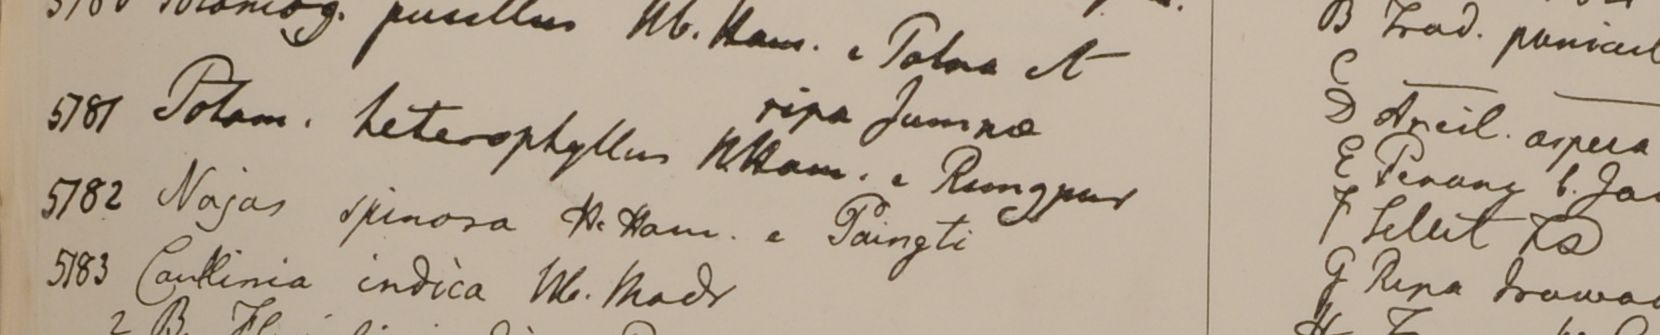 5780 Potamog. pusillus Hb. Ham. e Patna et
ripa Jumnæ
5781 Potam. heterophyllus H. Ham. e Rungpur
5782 Najas spinosa H. Ham. e Paingti
5783 Caulinia indica Hb. Madr
2 B.
B Trad. panicul
C
D Aneil. aspera
E Penang
F Sillet
G Ripa Irawad
H